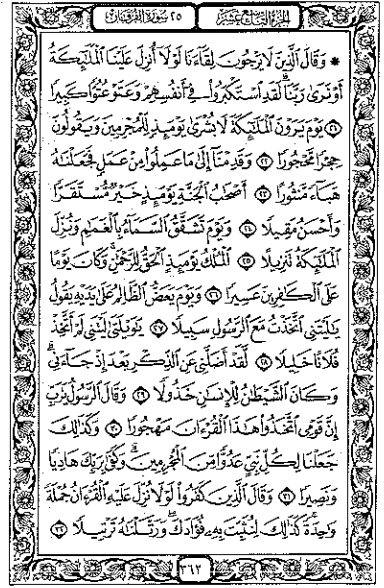 الجزء التاسع عشر
٢٥ سورة الفرقان
* وَقَالَ ٱلَّذِينَ لَا يَرْجُونَ لِقَآءَنَا لَوْلَآ أُنزِلَ عَلَيْنَا ٱلْمَلَٰٓئِكَةُ
أَوْ نَرَىٰ رَبَّنَا ۗ لَقَدِ ٱسْتَكْبَرُوا۟ فِىٓ أَنفُسِهِمْ وَعَتَوْ عُتُوًّا كَبِيرًا
٢١ يَوْمَ يَرَوْنَ ٱلْمَلَٰٓئِكَةَ لَا بُشْرَىٰ يَوْمَئِذٍ لِّلْمُجْرِمِينَ وَيَقُولُونَ
حِجْرًا مَّحْجُورًا ٢٢ وَقَدِمْنَآ إِلَىٰ مَا عَمِلُوا۟ مِنْ عَمَلٍ فَجَعَلْنَٰهُ
هَبَآءً مَّنثُورًا ٢٣ أَصْحَٰبُ ٱلْجَنَّةِ يَوْمَئِذٍ خَيْرٌ مُّسْتَقَرًّا
وَأَحْسَنُ مَقِيلًا ٢٤ وَيَوْمَ تَشَقَّقُ ٱلسَّمَآءُ بِٱلْغَمَٰمِ وَنُزِّلَ
ٱلْمَلَٰٓئِكَةُ تَنزِيلًا ٢٥ ٱلْمُلْكُ يَوْمَئِذٍ ٱلْحَقُّ لِلرَّحْمَٰنِ ۚ وَكَانَ يَوْمًا
عَلَى ٱلْكَٰفِرِينَ عَسِيرًا ٢٦ وَيَوْمَ يَعَضُّ ٱلظَّالِمُ عَلَىٰ يَدَيْهِ يَقُولُ
يَٰلَيْتَنِى ٱتَّخَذْتُ مَعَ ٱلرَّسُولِ سَبِيلًا ٢٧ يَٰوَيْلَتَىٰ لَيْتَنِى لَمْ أَتَّخِذْ
فُلَانًا خَلِيلًا ٢٨ لَّقَدْ أَضَلَّنِى عَنِ ٱلذِّكْرِ بَعْدَ إِذْ جَآءَنِى ۗ
وَكَانَ ٱلشَّيْطَٰنُ لِلْإِنسَٰنِ خَذُولًا ٢٩ وَقَالَ ٱلرَّسُولُ يَٰرَبِّ
إِنَّ قَوْمِى ٱتَّخَذُوا۟ هَٰذَا ٱلْقُرْءَانَ مَهْجُورًا ٣٠ وَكَذَٰلِكَ
جَعَلْنَا لِكُلِّ نَبِىٍّ عَدُوًّا مِّنَ ٱلْمُجْرِمِينَ ۗ وَكَفَىٰ بِرَبِّكَ هَادِيًا
وَنَصِيرًا ٣١ وَقَالَ ٱلَّذِينَ كَفَرُوا۟ لَوْلَا نُزِّلَ عَلَيْهِ ٱلْقُرْءَانُ جُمْلَةً
وَٰحِدَةً ۚ كَذَٰلِكَ لِنُثَبِّتَ بِهِۦ فُؤَادَكَ ۖ وَرَتَّلْنَٰهُ تَرْتِيلًا ٣٢
٣٦٢